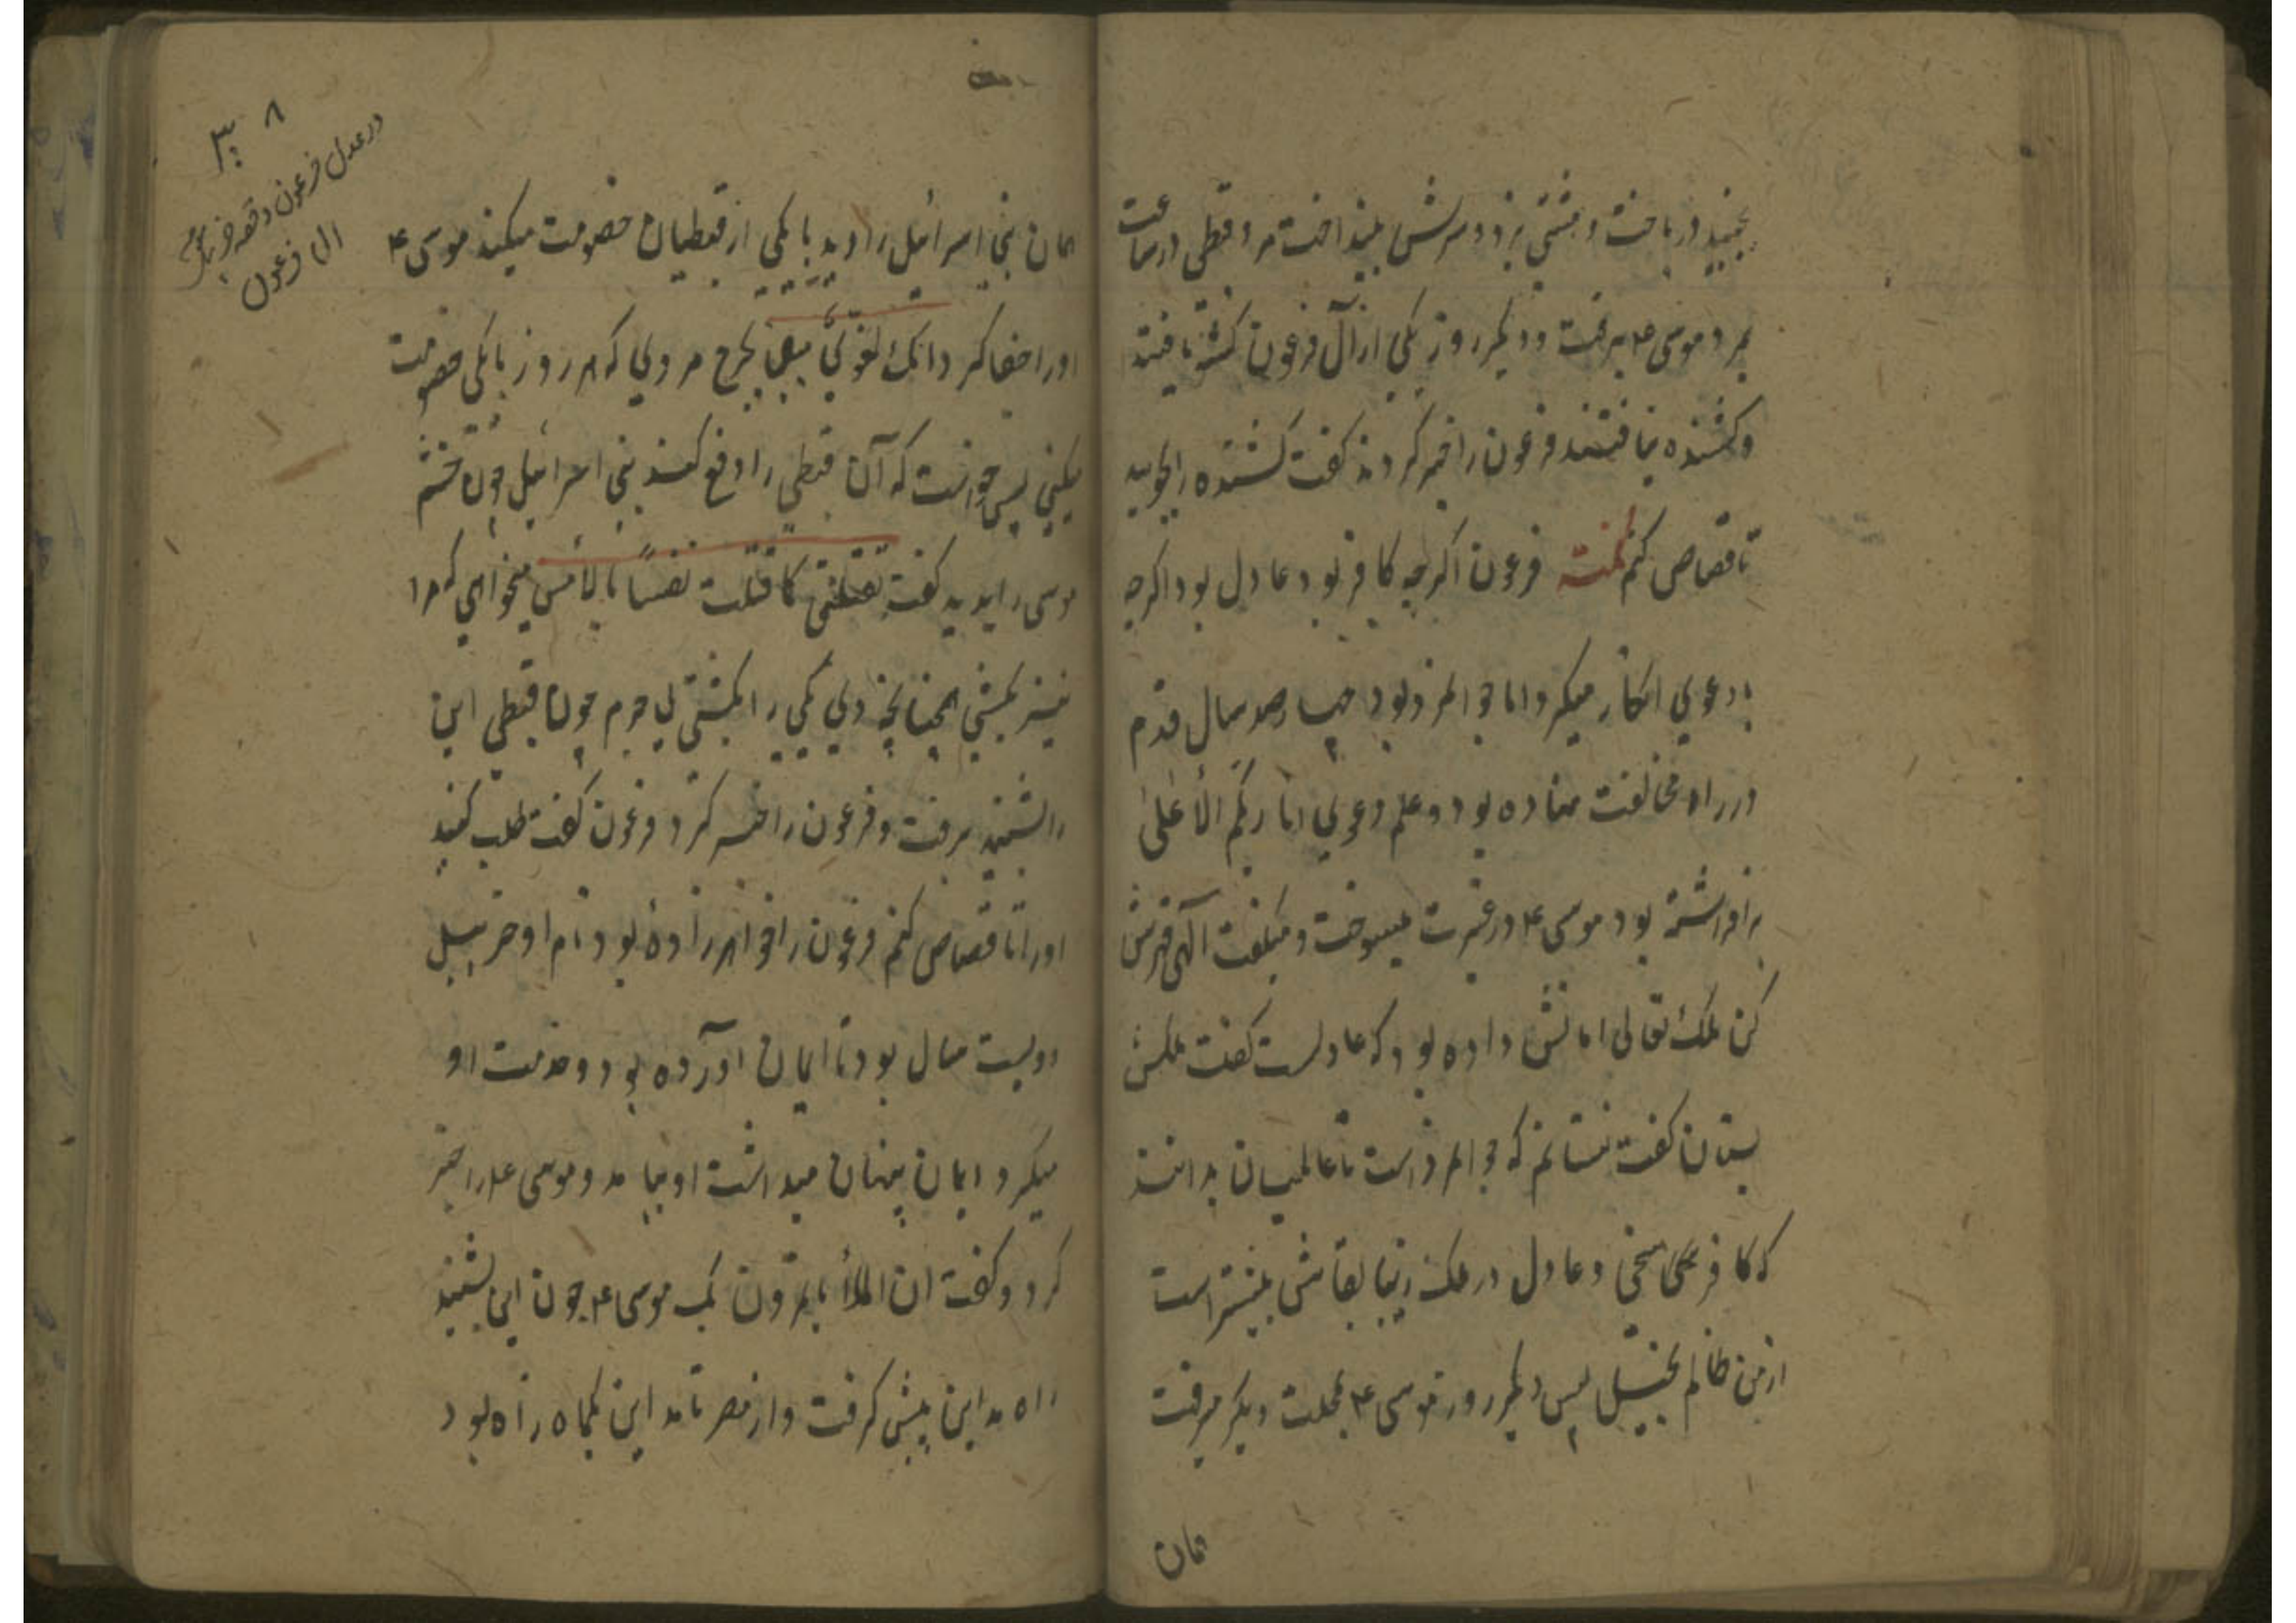 بجنبید دریافت و مشتی بزد و سرش بینداخت مرد قبطی در ساعت
بمرد موسی ع برفت و دیگر روز یکی از آل فرعون کشته یافتند
و کشنده نیافتند فرعون را خبر کردند گفت کشنده را بجویید
تا قصاص کنم نکته فرعون اگرچه کافر بود عادل بود اگرچه
دعوی انکار میکرد اما جوانمرد بود چهارصد سال قدم
در راه مخالفت نهاده بود و علم دعوی انا ربکم الأعلیٰ
برافراشته بود موسی ع در غیرت میسوخت و میگفت الهی قهرش
کن ملک تعالی امانش داده بود که عادلست گفت ملکش
بستان گفت نستانم که جوانمرد است تا عالمیان بدانند
که کافر سخی و عادل در ملک دنیا بقاش بیشتر است
از من ظالم بخیل پس دیگر روز موسی ع بمحلت دیگر میرفت
همان
۳۰۸
در عدل فرعون و قصه حزبیل مومن
ال فرعون
همان بنی اسرائیل را دید با یکی از قبطیان خصومت میکند موسی ع
او را جفا کرد انک لغوی مبین بحرج مردی که هر روز با یکی خصومت
میکنی پس خواست که آن قبطی را دفع کند بنی اسرائیل چون خشم
موسی را بدید گفت تقتلنی کما قتلت نفساً بالأمس میخواهی که مرا
نیز بکشی همچنانچه دی یکی را بکشتی لاجرم چون قبطی این
را بشنید برفت و فرعون را خبر کرد فرعون گفت طلب کنید
او را تا قصاص کنم فرعون را خواهرزاده بود نام او حزبیل
دویست سال بود تا ایمان آورده بود و خدمت او
میکرد و ایمان پنهان میداشت او بیامد و موسی ع را خبر
کرد و گفت ان الملأ یأتمرون بک موسی ع چون این بشنید
راه مداین پیش گرفت و از مصر تا مداین یکماه راه بود